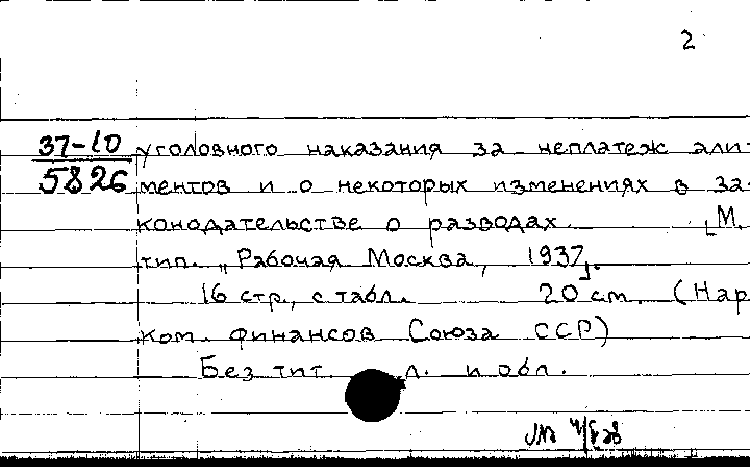 2
37-10
5826
уголовного наказания за неплатеж али-
ментов и о некоторых изменениях в за-
конодательстве о разводах. [М.
тип. „Рабочая Москва, 1937].
16 стр., с табл. 20 см. (Нар
ком. финансов Союза ССР)
Без тит. л. и обл.